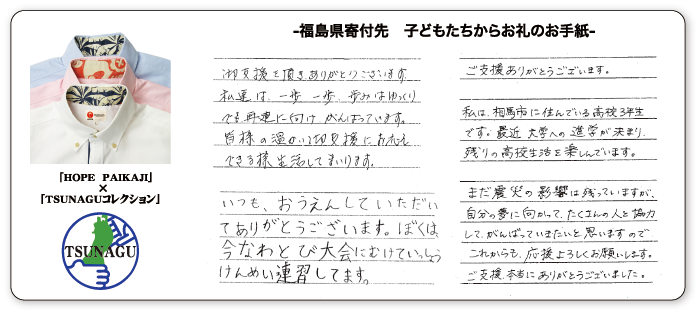 -福島県寄付先　子どもたちからお礼のお手紙-
「HOPE PAIKAJI」
×
「TSUNAGUコレクション」
TSUNAGU
御支援を頂き、ありがとうございます
私達は、一歩一歩、歩みはゆっくり
でも再建に向け がんばっています。
皆様の温かい御支援に お礼を
できる様 生活してまいります。
いつも、おうえんしていただい
てありがとうございます。ぼくは、
今なわとび大会にむけていっしょう
けんめい連習してます。
ご支援ありがとうございます。
私は、相馬市に住んでいる高校3年生
です。最近 大学への進学が決まり、
残りの高校生活を楽しんでいます。
まだ震災の影響は残っていますが、
自分の夢に向かって、たくさんの人と協力
して、がんばっていきたいと思いますので
これからも、応援よろしくお願いします。
ご支援本当にありがとうございました。